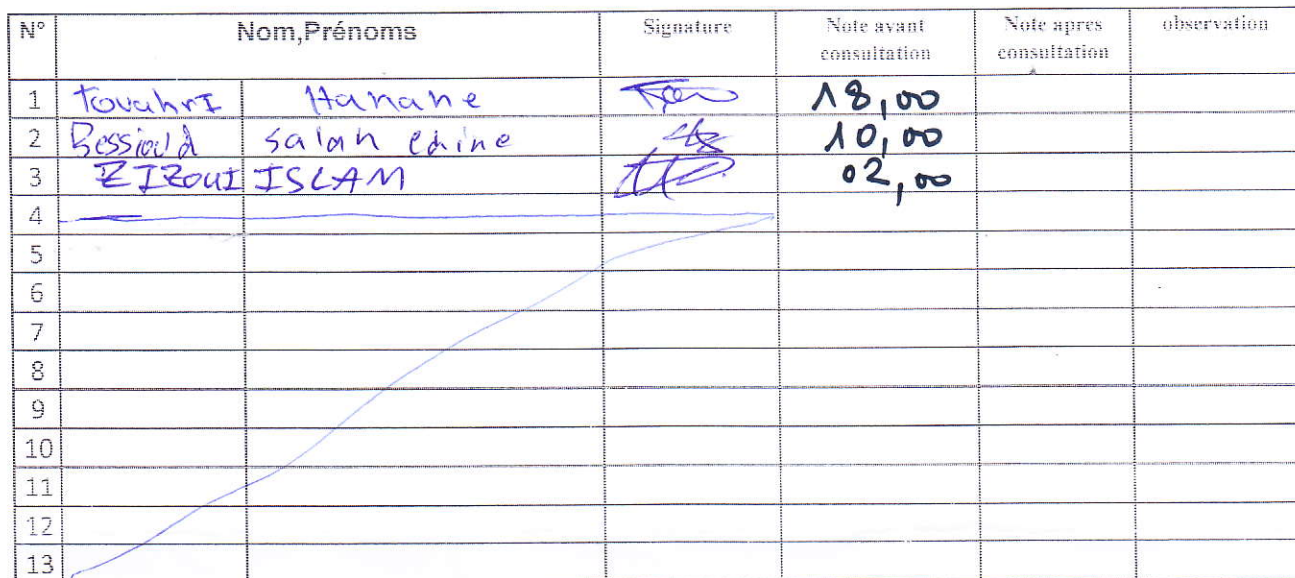 N° Nom,Prénoms Signature Note avant consultation Note apres consultation observation
1 TouahrI Hanane 18,00
2 salah 10,00
3 ZIZOUI ISLAM 02,00
4
5
6
7
8
9
10
11
12
13